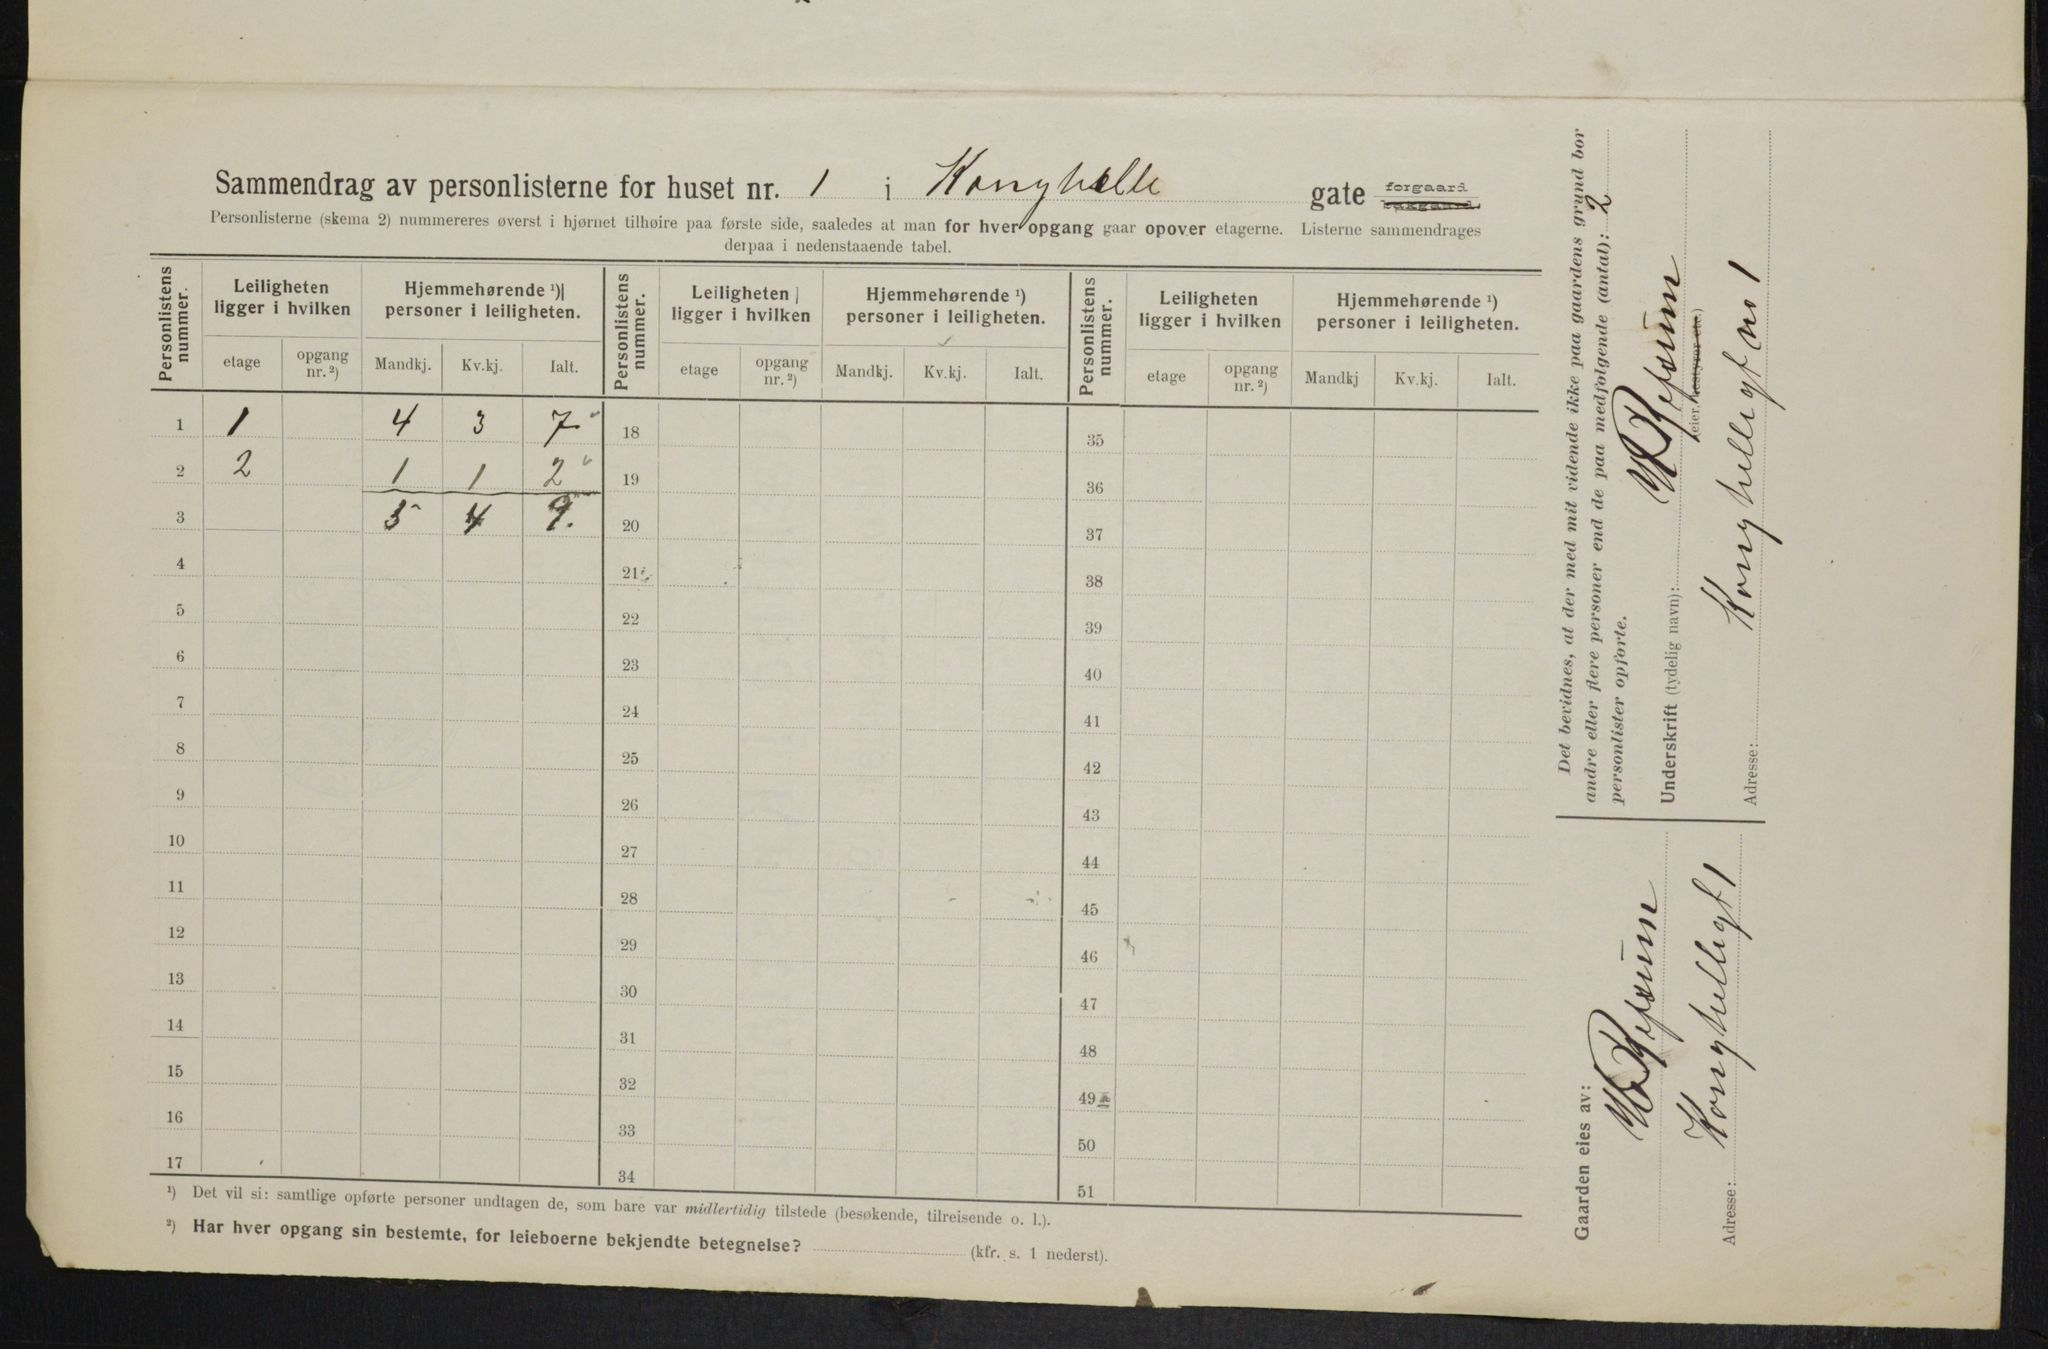 Sammendrag av personlisterne for huset nr. 1 i Konghelle gate forgaard bakgaard.
Personlisterne (skema 2) nummereres øverst i hjørnet tilhøire paa første side, saaledes at man for hver opgang gaar opover etagerne. Listerne sammendrages
derpaa i nedenstaaende tabel.
Personlistens nummer. Leiligheten ligger i hvilken Hjemmehørende ¹) personer i leiligheten. Personlistens nummer. Leiligheten ligger i hvilken Hjemmehørende ¹) personer i leiligheten. Personlistens nummer. Leiligheten ligger i hvilken Hjemmehørende ¹) personer i leiligheten.
etage opgang nr. ²) Mandkj. Kv.kj. Ialt. etage opgang nr. ²) Mandkj. Kv.kj. Ialt. etage opgang nr. ²) Mandkj Kv.kj. Ialt.
1 1 4 3 7 18 35
2 2 1 1 2 19 36
3 5 4 9. 20 37
4 21 38
5 22 39
6 23 40
7 24 41
8 25 42
9 26 43
10 27 44
11 28 45
12 29 46
13 30 47
14 31 48
15 32 49
16 33 50
17 34 51
¹) Det vil si: samtlige opførte personer undtagen de, som bare var midlertidig tilstede (besøkende, tilreisende o. l.).
²) Har hver opgang sin bestemte, for leieboerne bekjendte betegnelse? (kfr. s. 1 nederst).
Det bevidnes, at der med mit vidende ikke paa gaardens grund bor
andre eller flere personer end de paa medfølgende (antal): 2
personlister opførte.
Underskrift (tydelig navn):
eier, bestyrer etc.)
Adresse: Konghellegt no 1
Gaarden eies av:
Adresse: Konghellegt 1